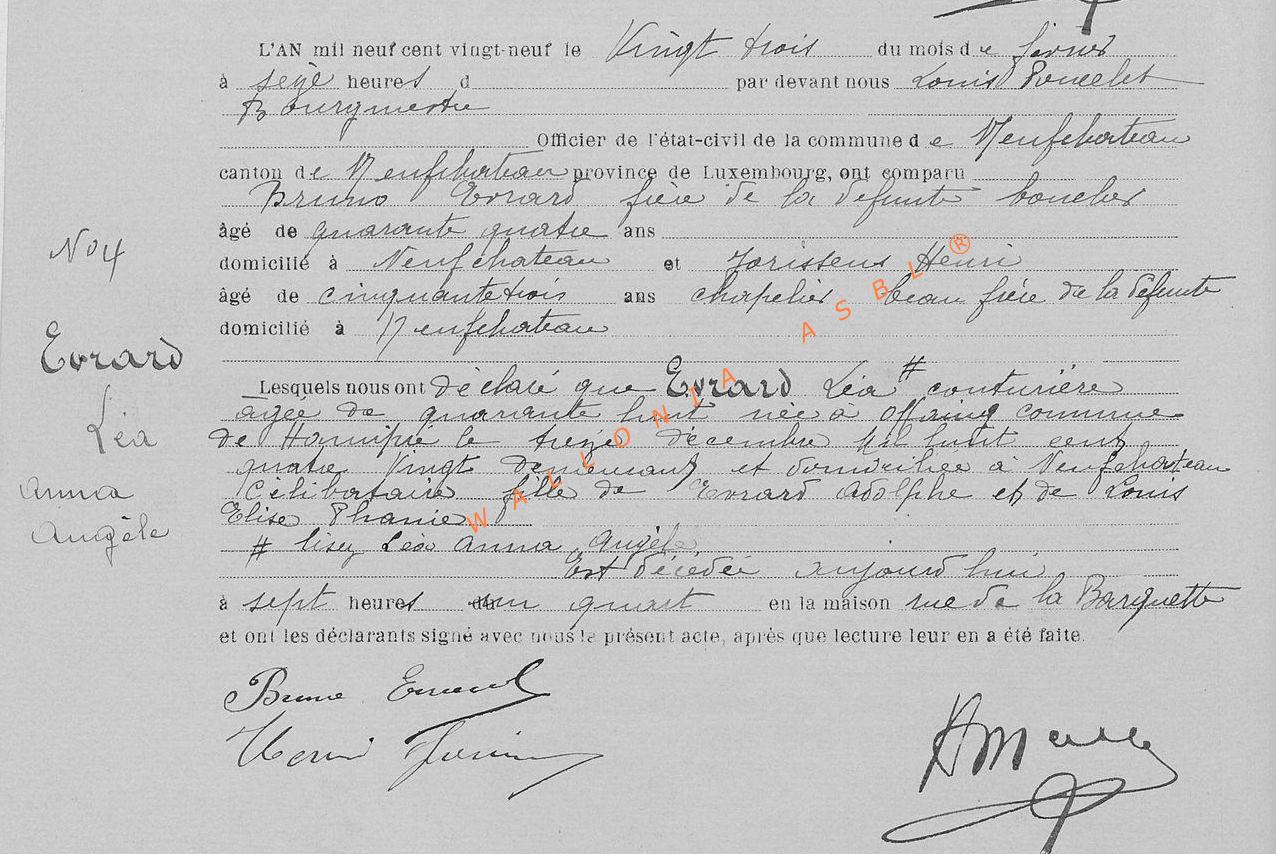 L'AN mil neuf cent vingt-neuf le Vingt trois du mois de
à seize heures d par devant nous Louis Poncelet
Bourgmestre
Officier de l'état-civil de la commune de Neufchateau
canton de Neufchateau province de Luxembourg, ont comparu
Bruno Evrard frère de la défunte boucher
âgé de quarante quatre ans
N° 4
domicilié à Neufchateau et Jorissens Henri
âgé de cinquante trois ans chapelier beau frère de la défunte
domicilié à Neufchateau
Evrard
Léa
Anna
Angèle
Lesquels nous ont déclaré que Evrard Léa # couturière
agée de quarante huit née à Offaing commune
de Hamipré le treize décembre mil huit cent
quatre Vingt et domiciliée à Neufchateau
Célibataire fille de Evrard Adolphe et de Louis
Elise Phanie
# lisez Léa Anna Angèle
Est décédée aujourd'hui
à sept heures un quart en la maison rue de la Barquette
et ont les déclarants signé avec nous le présent acte, après que lecture leur en a été faite.
Bruno Evrard
Henri
WALLONIA ASBL ®